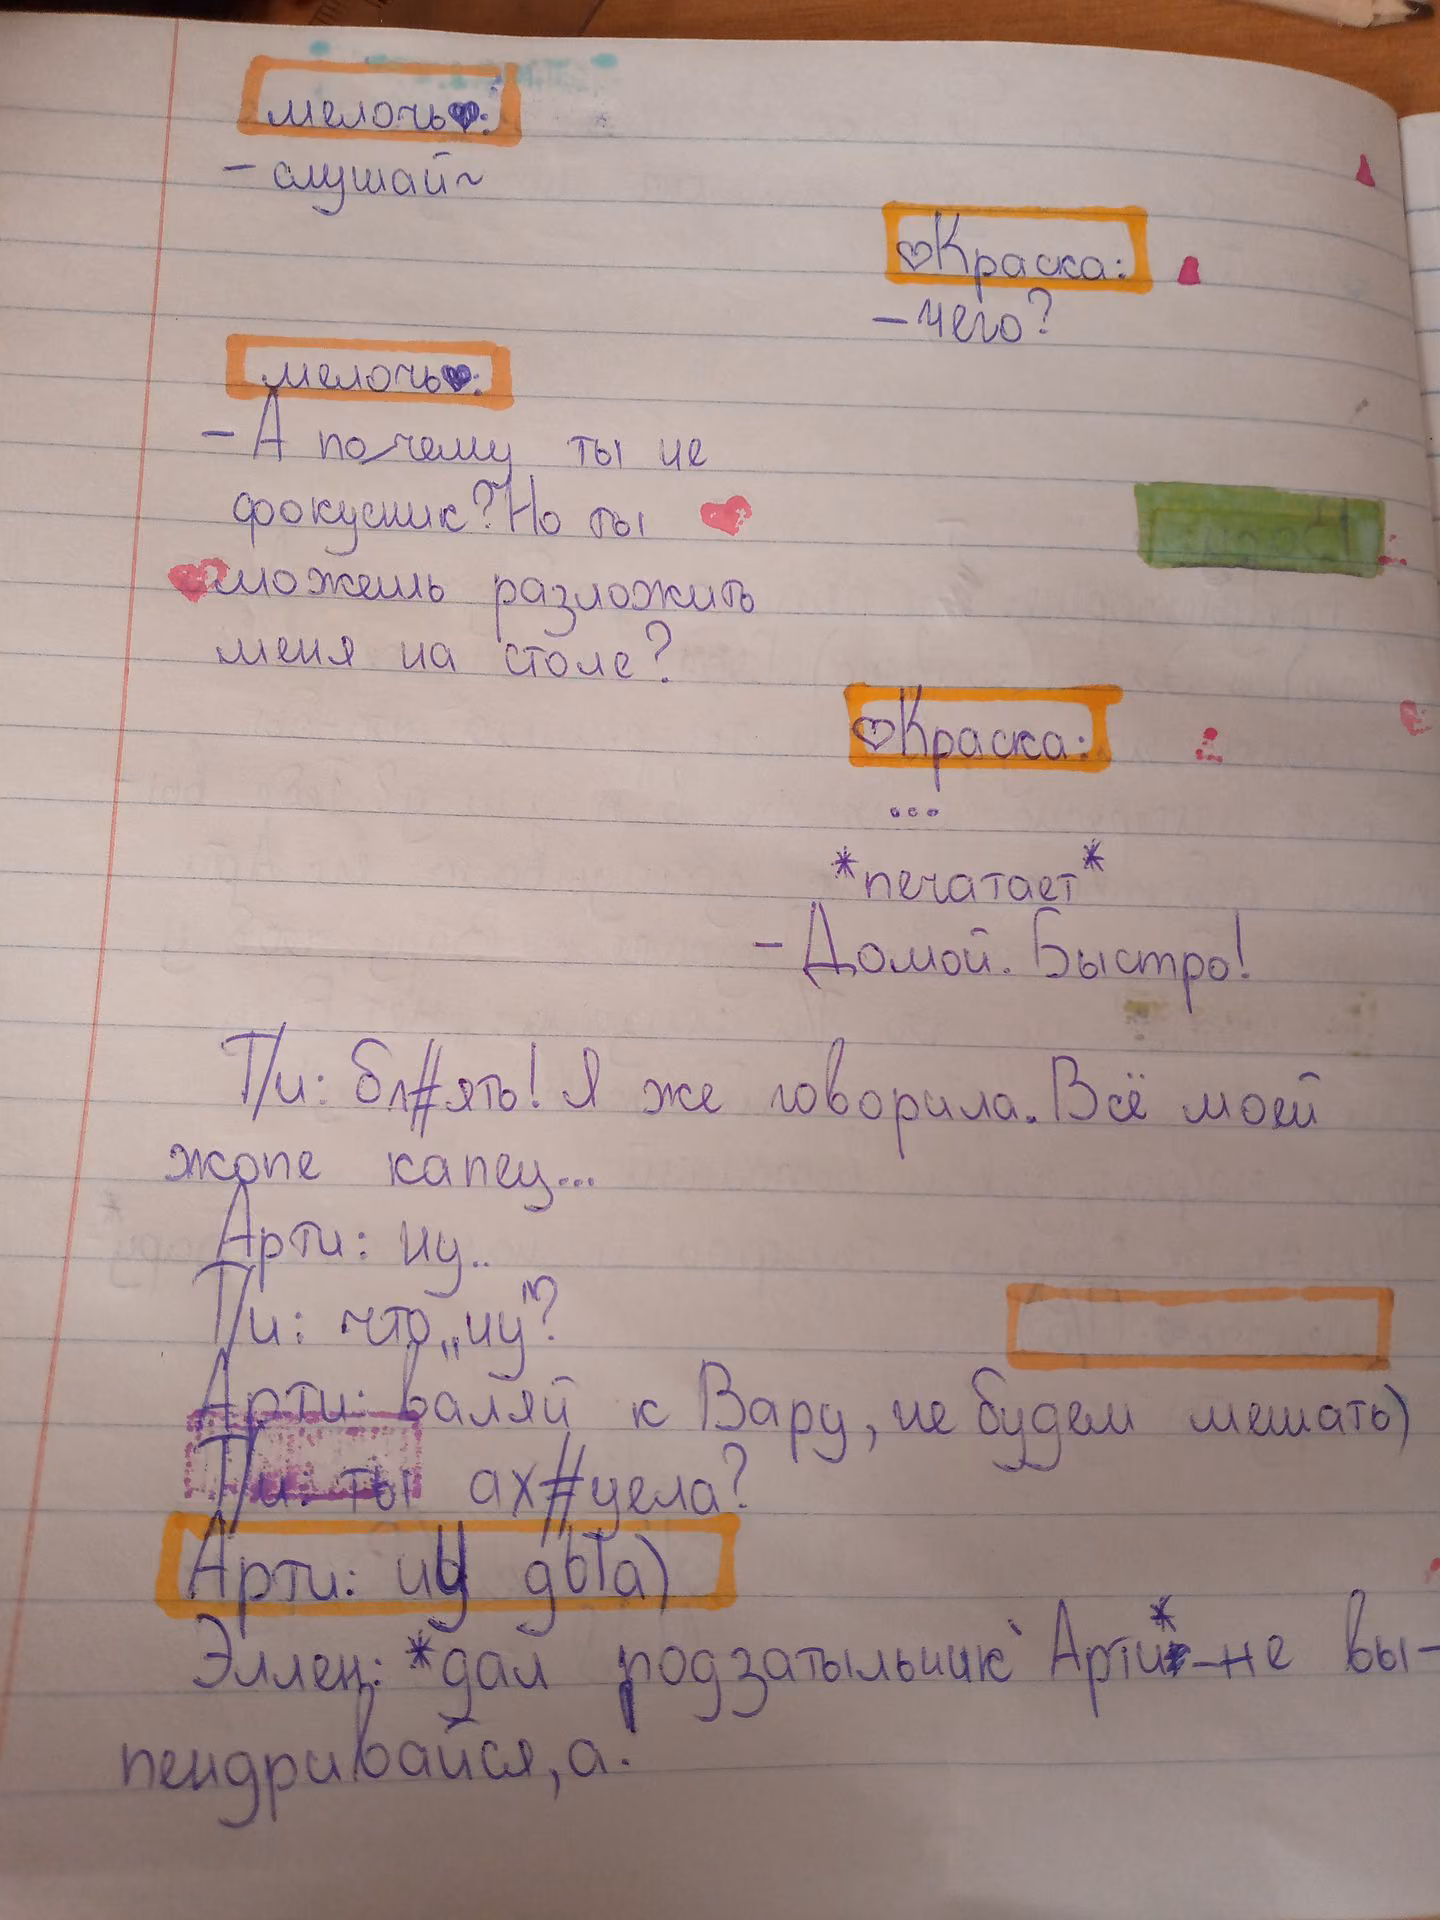 мелочь♥:
– слушай~
♡Краска:
– чего?
мелочь♥:
– А почему ты не
фокусник? Но ты
можешь разложить
меня на столе?
♡Краска:
...
*печатает*
– Домой. Быстро!
Т/и: бл#ять! Я же говорила. Всё моей
жопе капец...
Арти: ну..
Т/и: что „ну"?
Арти: валяй к Вару, не будем мешать)
Т/и: ты ах#уела?
Арти: ну да)
Эллен: *дал подзатыльник Арти* – не вы-
пендривайся, а.